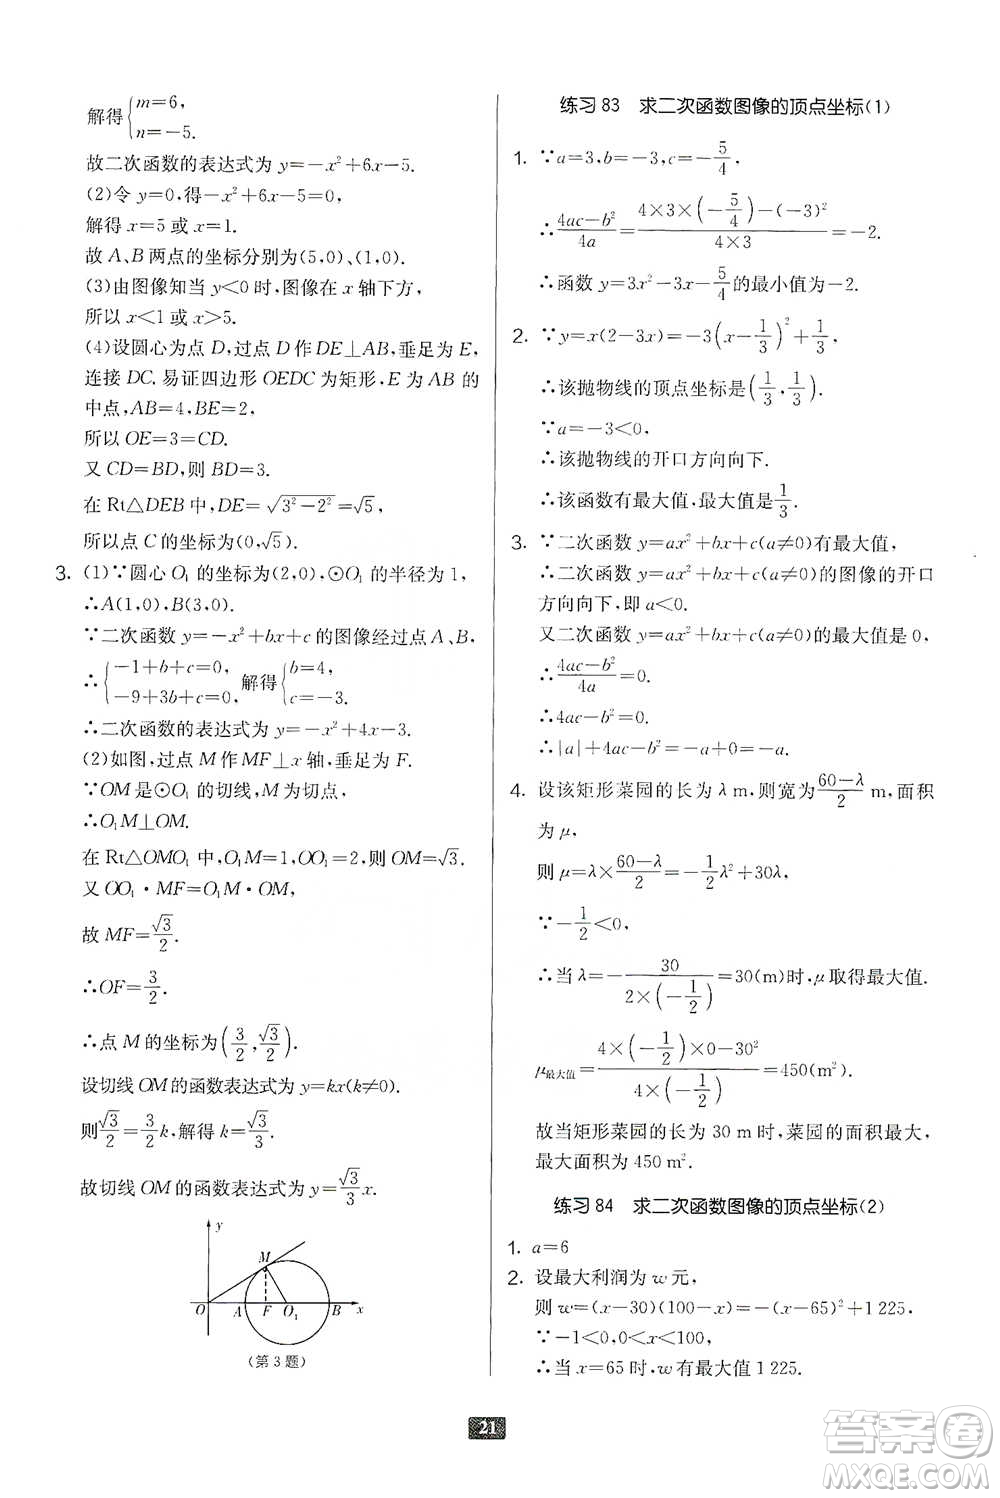 解得{m=6, n=-5.
故二次函数的表达式为 y=-x²+6x-5.
(2)令 y=0,得-x²+6x-5=0,
解得 x=5 或 x=1.
故 A、B 两点的坐标分别为(5,0)、(1,0).
(3)由图像知当 y<0 时,图像在 x 轴下方,
所以 x<1 或 x>5.
(4)设圆心为点 D,过点 D 作 DE⊥AB,垂足为 E,
连接 DC. 易证四边形 OEDC 为矩形,E 为 AB 的
中点,AB=4,BE=2,
所以 OE=3=CD.
又 CD=BD,则 BD=3.
在 Rt△DEB 中,DE=√(3²-2²)=√5,
所以点 C 的坐标为(0,√5).
3. (1)∵圆心 O₁ 的坐标为(2,0),⊙O₁ 的半径为 1,
∴A(1,0),B(3,0).
∵二次函数 y=-x²+bx+c 的图像经过点 A、B,
∴{-1+b+c=0, -9+3b+c=0, 解得{b=4, c=-3.
∴二次函数的表达式为 y=-x²+4x-3.
(2)如图,过点 M 作 MF⊥x 轴,垂足为 F.
∵OM 是⊙O₁ 的切线,M 为切点,
∴O₁M⊥OM.
在 Rt△OMO₁ 中,O₁M=1,OO₁=2,则 OM=√3.
又 OO₁·MF=O₁M·OM,
故 MF=√3/2.
∴OF=3/2.
∴点 M 的坐标为(3/2,√3/2).
设切线 OM 的函数表达式为 y=kx(k≠0).
则√3/2=3/2k,解得 k=√3/3.
故切线 OM 的函数表达式为 y=√3/3x.
y
M
O A F O₁ B x
(第 3 题)
练习 83 求二次函数图像的顶点坐标(1)
1. ∵a=3,b=-3,c=-5/4,
∴(4ac-b²)/4a=(4×3×(-5/4)-(-3)²)/(4×3)=-2.
∴函数 y=3x²-3x-5/4的最小值为-2.
2. ∵y=x(2-3x)=-3(x-1/3)²+1/3,
∴该抛物线的顶点坐标是(1/3,1/3).
∵a=-3<0,
∴该抛物线的开口方向向下.
∴该函数有最大值,最大值是1/3.
3. ∵二次函数 y=ax²+bx+c(a≠0)有最大值,
∴二次函数 y=ax²+bx+c(a≠0)的图像的开口
方向向下,即 a<0.
又二次函数 y=ax²+bx+c(a≠0)的最大值是 0,
∴(4ac-b²)/4a=0.
∴4ac-b²=0.
∴|a|+4ac-b²=-a+0=-a.
4. 设该矩形菜园的长为 λ m,则宽为(60-λ)/2 m,面积
为 μ,
则 μ=λ×(60-λ)/2=-1/2λ²+30λ.
∵-1/2<0,
∴当 λ=-30/(2×(-1/2))=30(m)时,μ取得最大值.
μ最大值=(4×(-1/2)×0-30²)/(4×(-1/2))=450(m²).
故当矩形菜园的长为 30 m 时,菜园的面积最大,
最大面积为 450 m².
练习 84 求二次函数图像的顶点坐标(2)
1. a=6
2. 设最大利润为 w 元,
则 w=(x-30)(100-x)=-(x-65)²+1 225.
∵-1<0,0<x<100,
∴当 x=65 时,w 有最大值 1 225.
21
答案圈
MXQE.COM